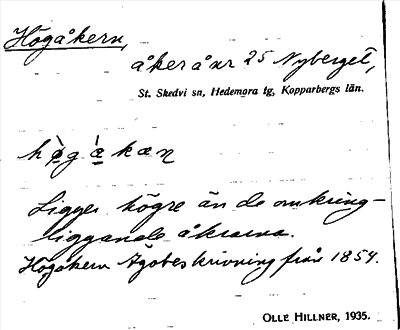 Högåkern,
åker å nr 25 Nyberget,
St. Skedvi sn, Hedemora tg, Kopparbergs län.
hø̀gæ̀kæn
Ligger högre än de omkring-
liggande åkrarna.
Högåkern Ägobeskrivning från 1854.
OLLE HILLNER, 1935.